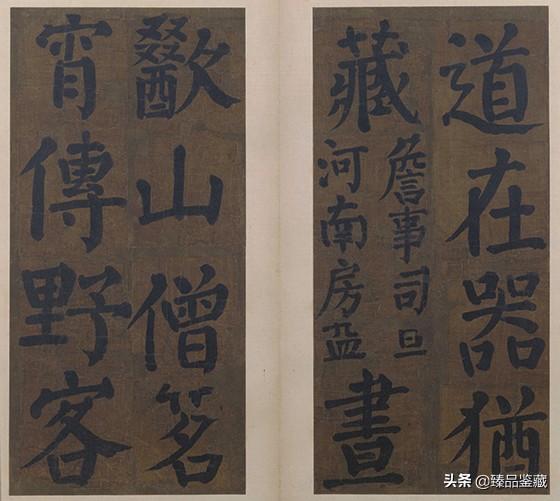 道在器猶
藏
詹事司旦
河南房益
晝
歠山僧茗
宵傳野客
头条 @臻品鉴藏